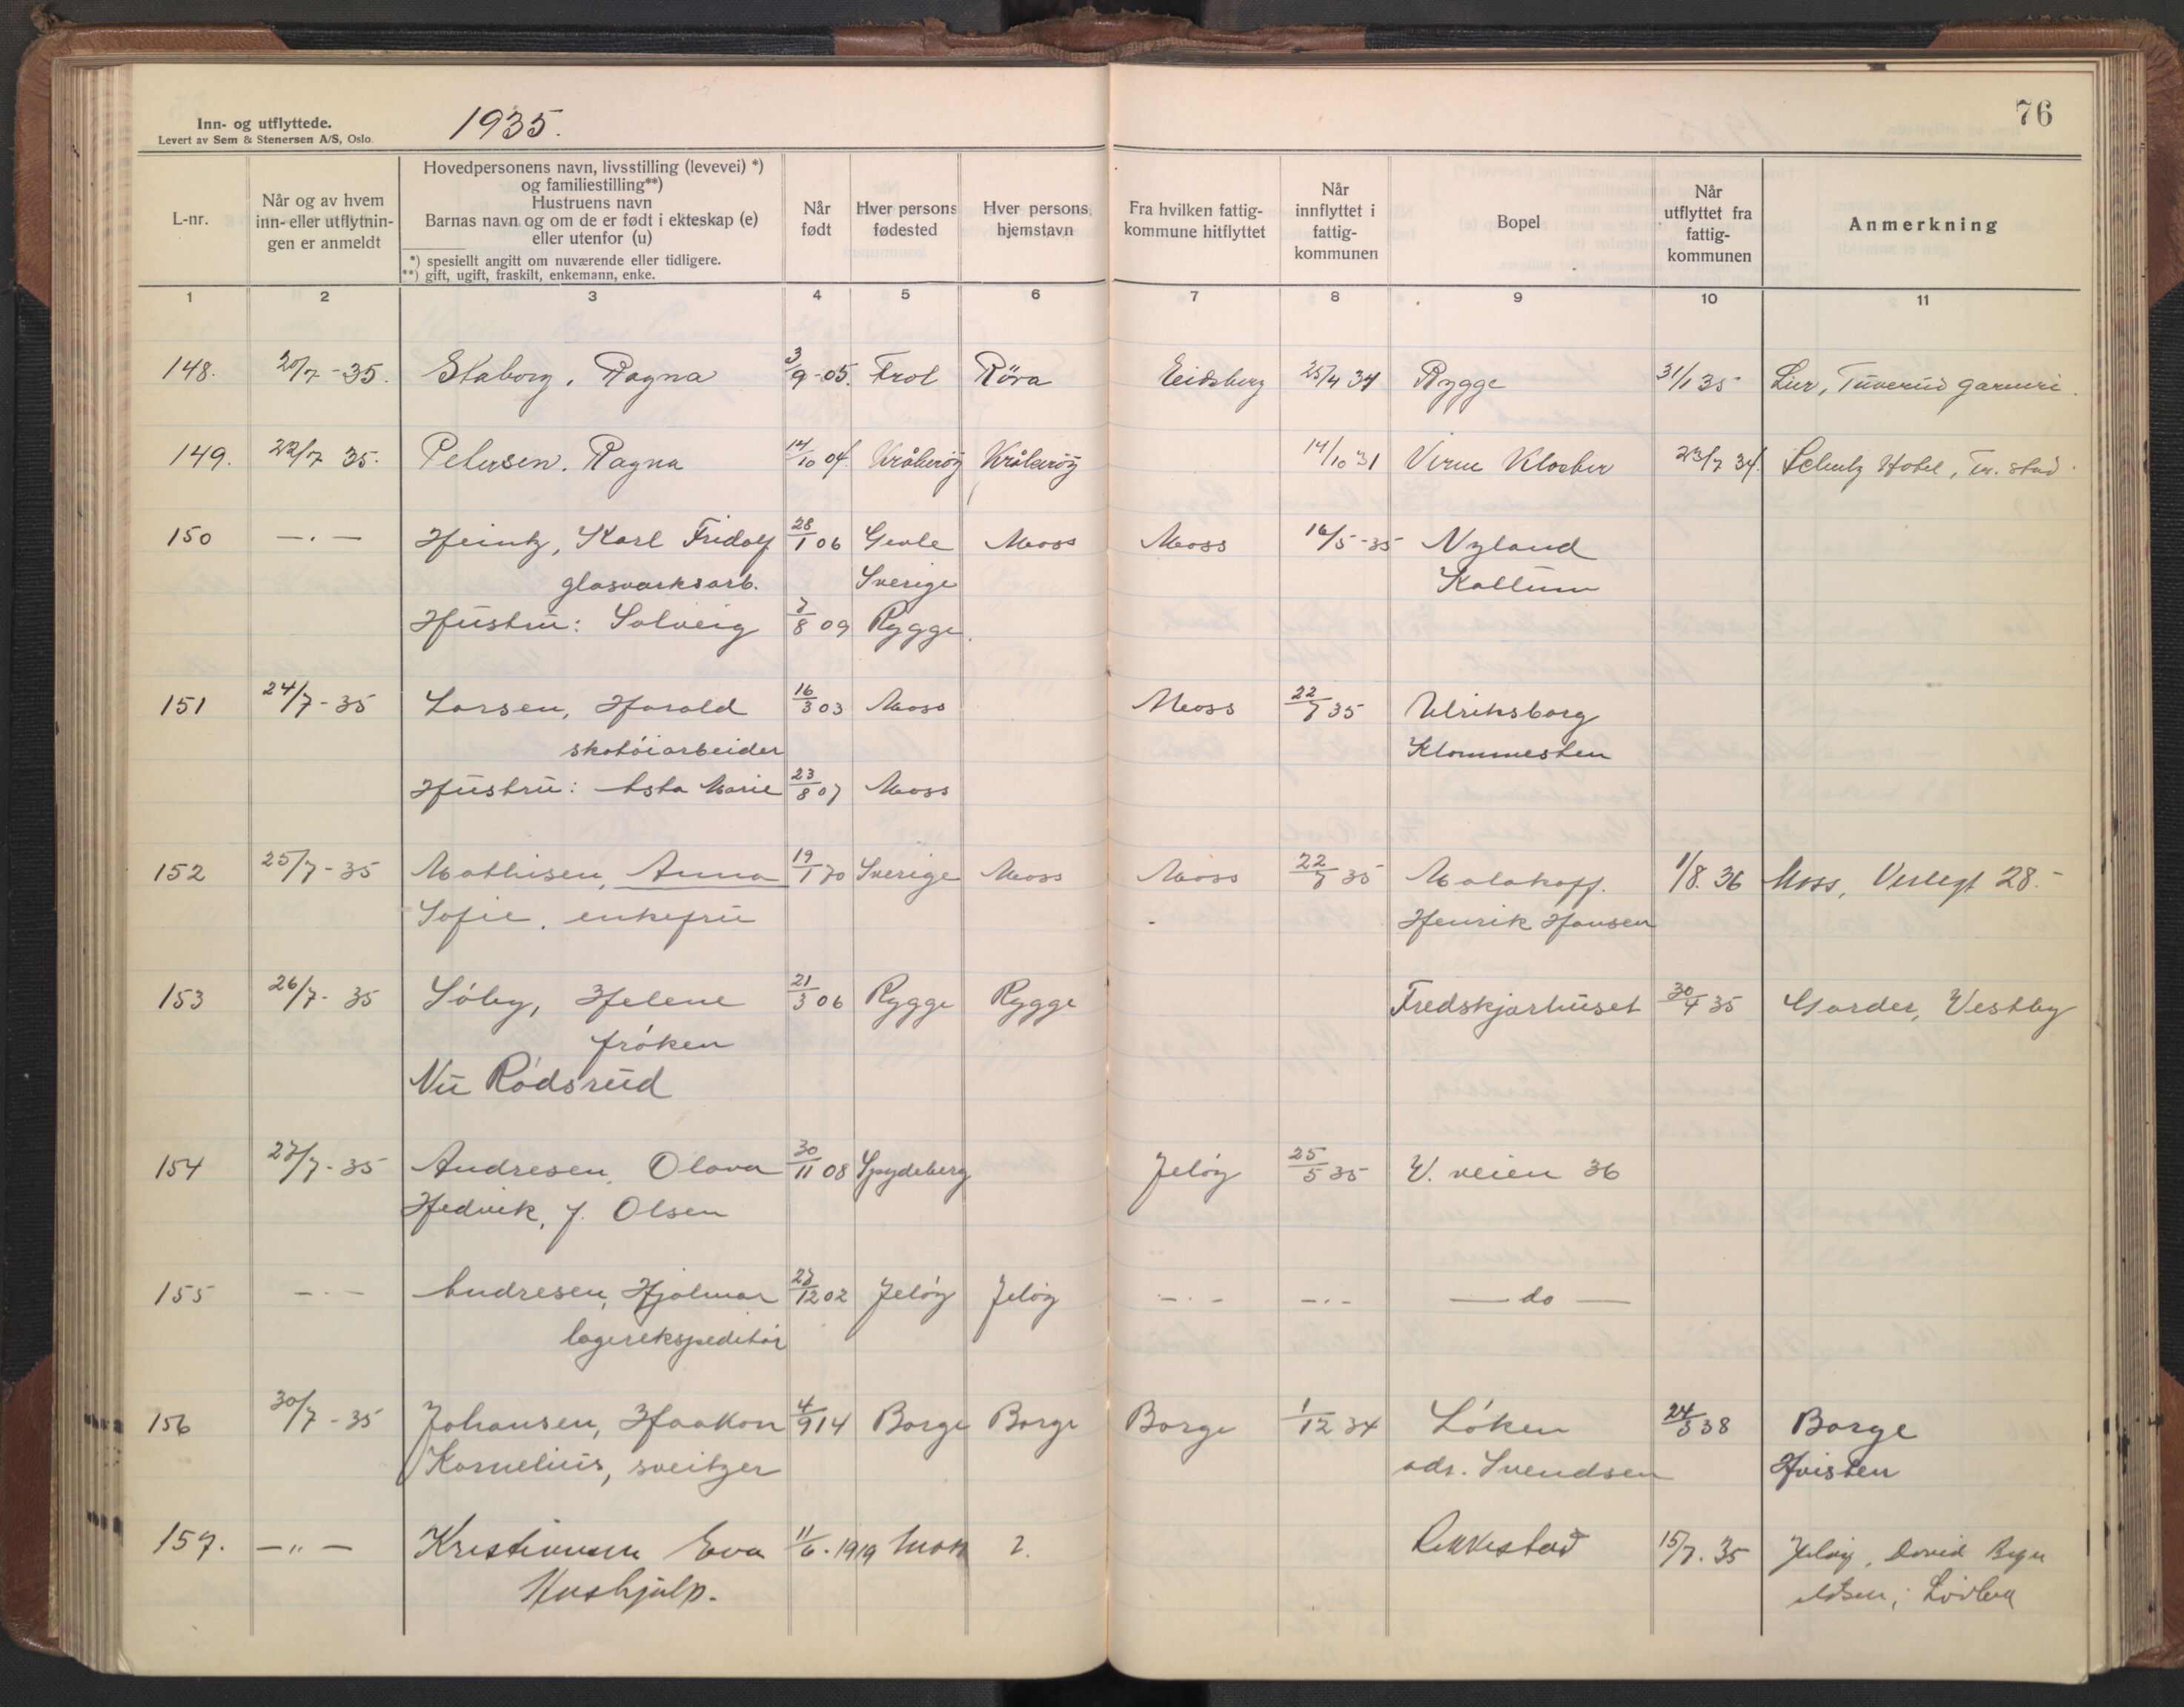 Inn- og utflyttede.
Levert av Sem & Stenersen A/S, Oslo.
1935.
76
L-nr.
Når og av hvem
inn- eller utflytnin-
gen er anmeldt
Hovedpersonens navn, livsstilling (levevei) *)
og familiestilling**)
Hustruens navn
Barnas navn og om de er født i ekteskap (e)
eller utenfor (u)
*) spesielt angitt om nuværende eller tidligere.
**) gift, ugift, fraskilt, enkemann, enke.
Når
født
Hver persons
fødested
Hver persons
hjemstavn
Fra hvilken fattig-
kommune hitflyttet
Når
innflyttet i
fattig-
kommunen
Bopel
Når
utflyttet fra
fattig-
kommunen
Anmerkning
1 2 3 4 5 6 7 8 9 10 11
148. 20/7 - 35. Skaborg, Ragna 3/9 - 05. Frol Röra Eidsberg 25/4 34 Rygge 31/1 35 Lier, Tuverud garneri.
149. 22/7 35. Petersen, Ragna 14/10 04. Kråkeröy Kråkeröy 14/10 31 Virne Kloster 23/7 34. Schulz Hotel, Fr. stad.
150 — . — Heintz, Karl Fridolf 28/1 06 Gevle Moss Moss 16/5 - 35 Nyland
glasverksarb. Sverige Kallum
Hustru: Solveig 7/8 09 Rygge.
151 24/7 - 35 Larsen, Harald 16/3 03 Moss Moss 22/7 35 Ulriksborg
skotöiarbeider Klommesten
Hustru: Asta Marie 23/8 07 Moss
152 25/7 - 35 Mathisen, Anna 19/1 70 Sverige Moss Moss 22/7 35 Malakoff. 1/8. 36 Moss, Verlegt 28.-
Sofie, enkefru - Henrik Hansen
153 26/7 - 35 Söby, Helene 21/3 06 Rygge Rygge Fredskjærhuset 30/4 35 Garder, Vestby
fröken
Nu Rödsrud
154 27/7 - 35 Andresen, Olava 30/11 08 Spydeberg Jelöy 25/5 35 V. veien 36
Hedvik, f. Olsen
155 — . — Andresen, Hjalmar 27/12 02 Jelöy Jelöy — . — — . — — do —
lagerekspeditör
156 30/7 - 35 Johansen, Haakon 4/9 14 Borge Borge Borge 1/12 34 Löken 24/3 38 Borge
Kornelius, sveitzer adr. Svendsen Hvisten
157. — „ — Kristiansen Eva 11/6. 1919 Moss ?. Rakkestad 15/7. 35 Jelöy, David
Hushjelp.